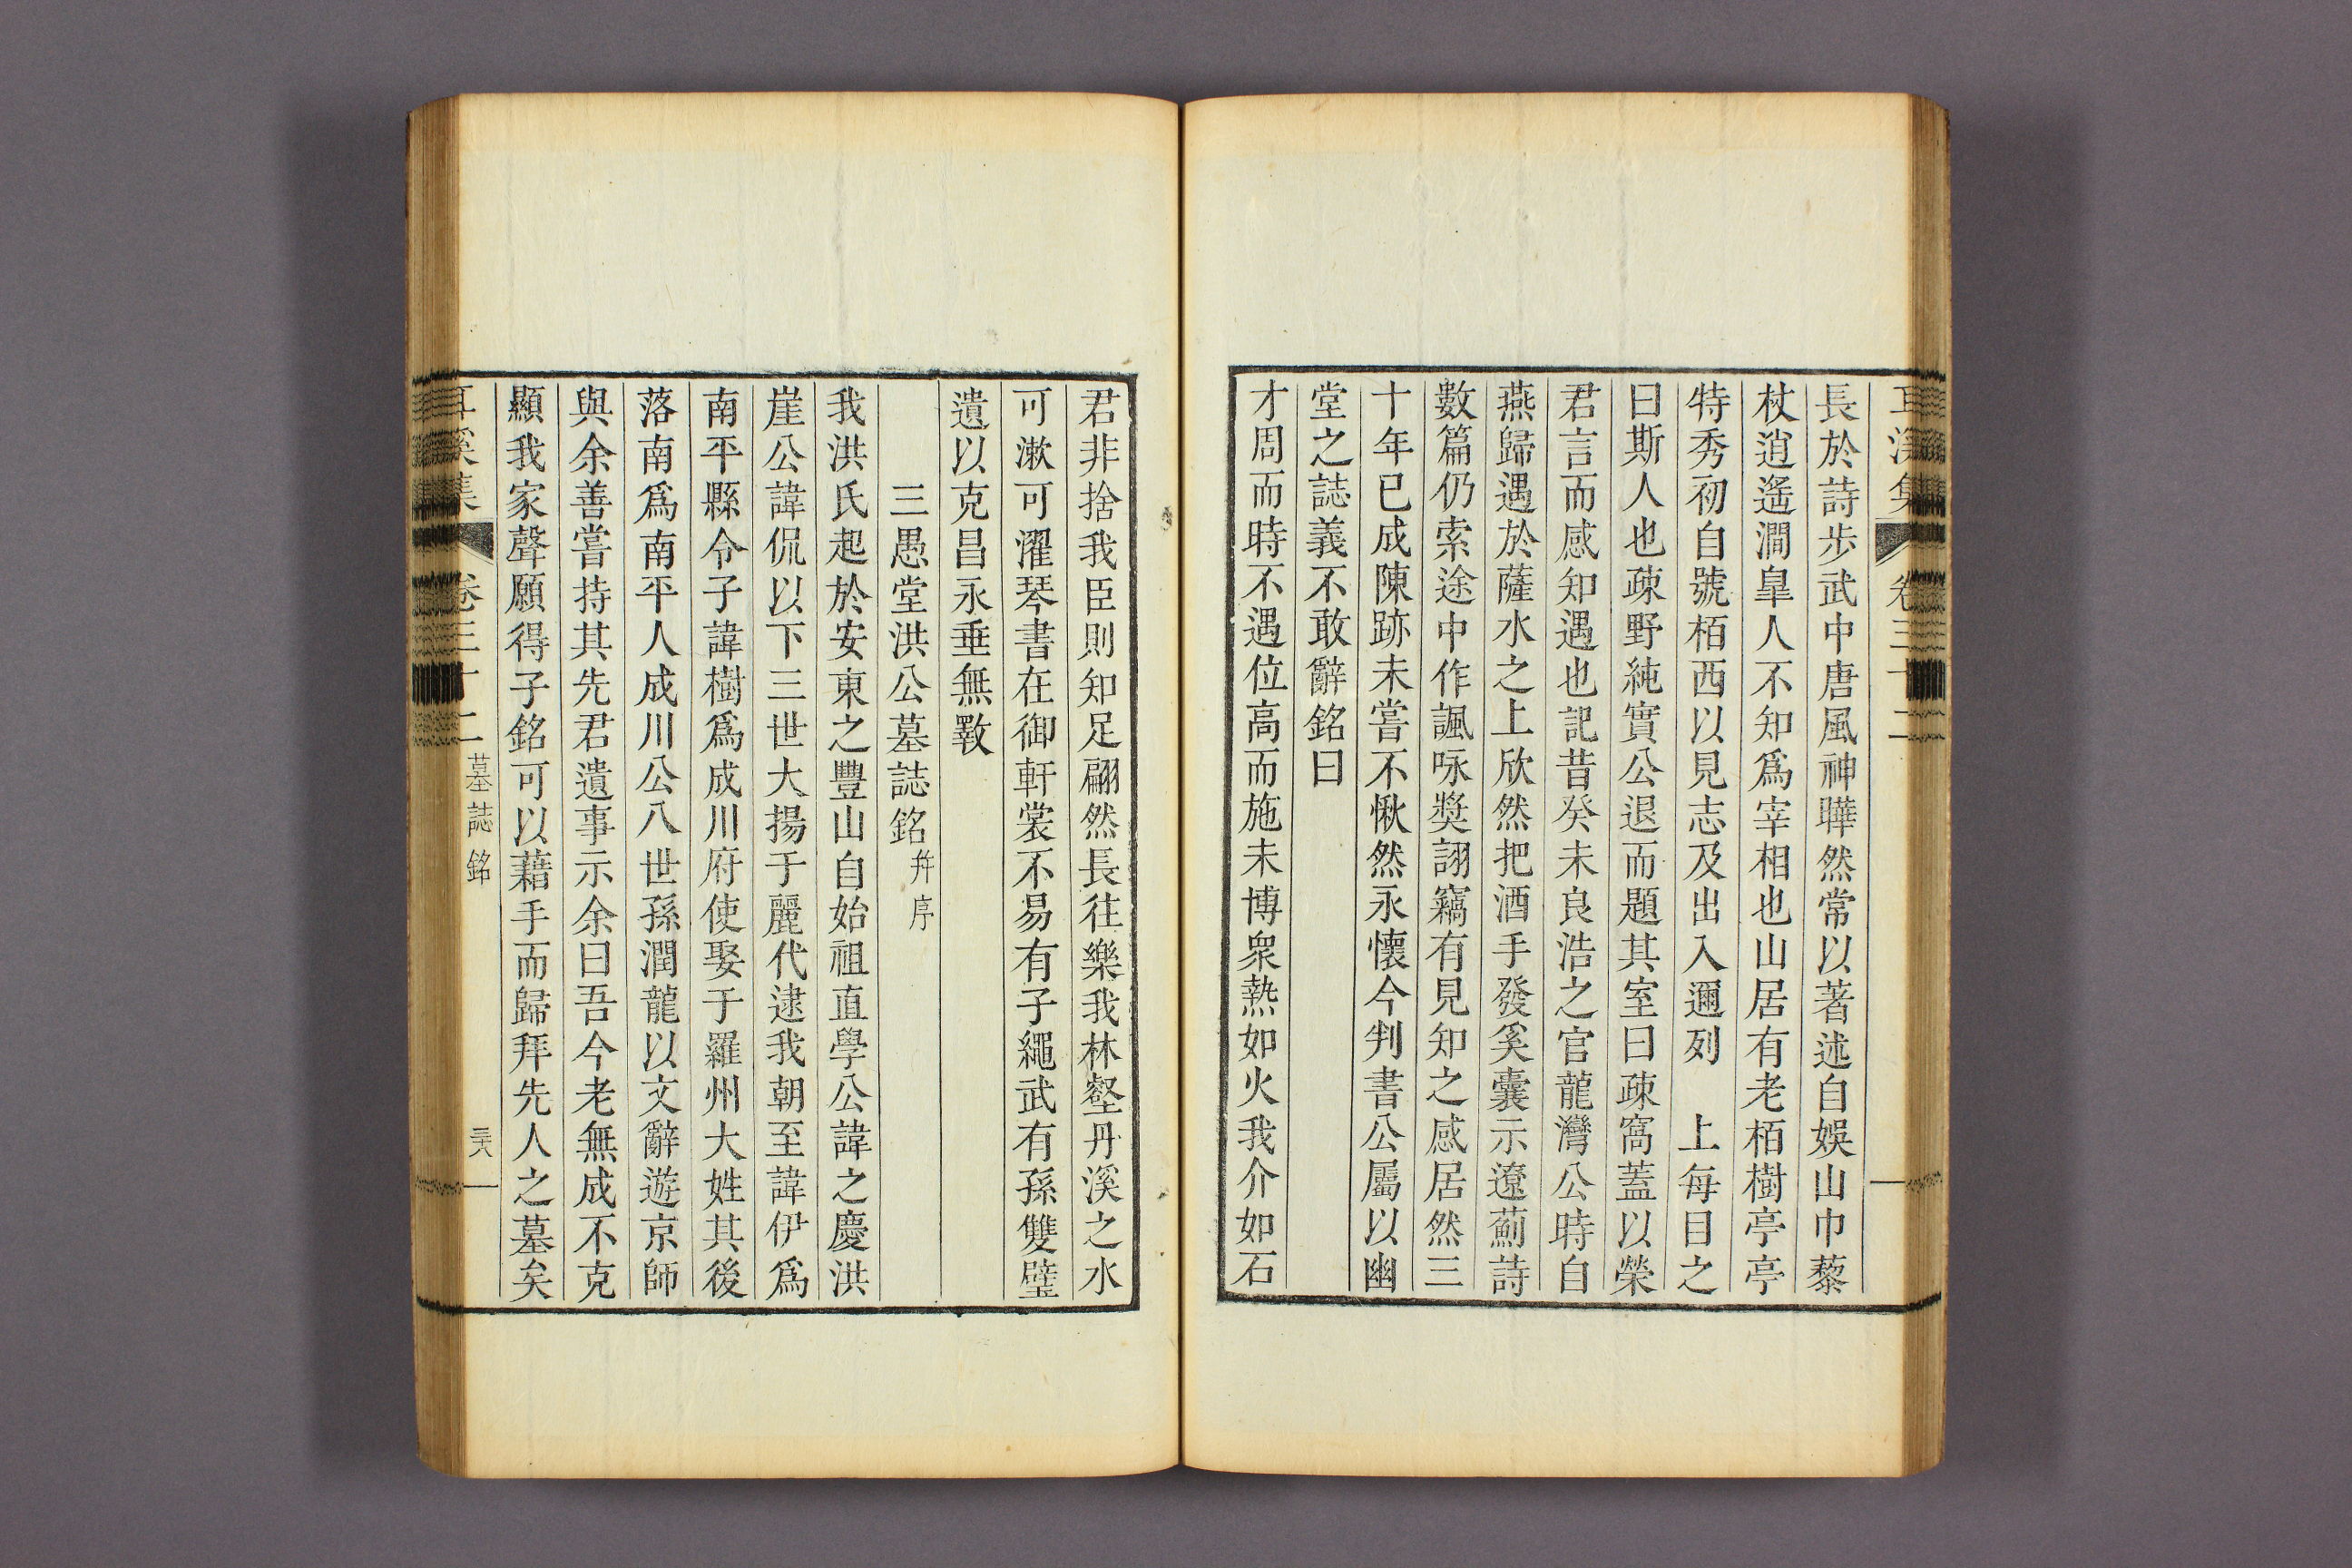 耳溪集 卷三十二
長於詩步武中唐風神曄然常以著述自娛山巾藜
杖逍遙澗皐人不知爲宰相也山居有老栢樹亭亭
特秀初自號栢西以見志及出入邇列 上每目之
曰斯人也疎野純實公退而題其室曰疎窩蓋以榮
君言而感知遇也記昔癸未良浩之官龍灣公時自
燕歸遇於薩水之上欣然把酒手發奚囊示遼薊詩
數篇仍索途中作諷咏奬詡竊有見知之感居然三
十年已成陳跡未嘗不愀然永懷今判書公屬以幽
堂之誌義不敢辭銘曰
才周而時不遇位高而施未博衆熱如火我介如石
君非捨我臣則知足翩然長往樂我林壑丹溪之水
可漱可濯琴書在御軒裳不易有子繩武有孫雙璧
遺以克昌永垂無斁
三愚堂洪公墓誌銘 幷序
我洪氏起於安東之豐山自始祖直學公諱之慶洪
崖公諱侃以下三世大揚于麗代逮我朝至諱伊爲
南平縣令子諱樹爲成川府使娶于羅州大姓其後
落南爲南平人成川公八世孫潤龍以文辭遊京師
與余善嘗持其先君遺事示余曰吾今老無成不克
顯我家聲願得子銘可以藉手而歸拜先人之墓矣
耳溪集 卷三十二 墓誌銘 三六